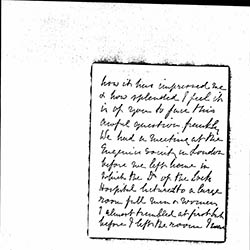 how it has impressed me
& how splendid I feel it
is of you to face this
awful question frankly.
We had a meeting at the
Eugenics Society in London
before we left home in
which the Dr of the Lock
Hospital lectured to a large
room full men & women
I almost trembled at first but
before I left the room I was